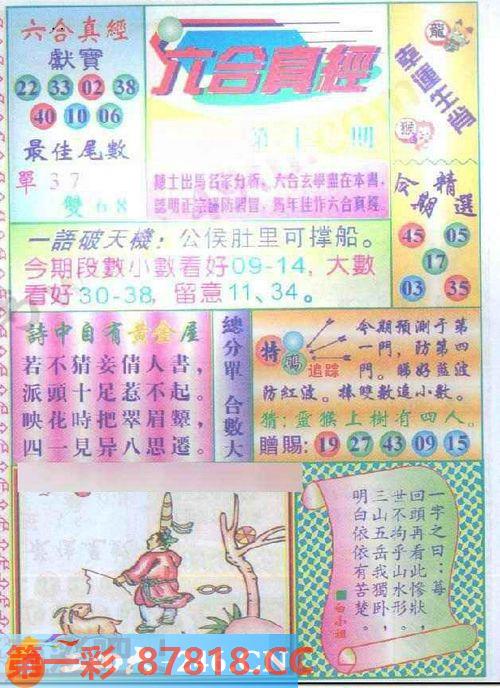 六合真經
獻寶
22 33 02 38
40 10 06
最佳尾數
單 3 7
雙 6 8
六合真經
第 期
隱士出馬名家分析，六合玄學盡在本書，
認明正宗謹防假冒，馬年佳作六合真經。
龍
幸運生肖
猴
今期精選
45 05
17
03 35
一語破天機：公侯肚里可撑船。
今期段數小數看好09-14，大數
看好30-38，留意11、34。
詩中自有黃金屋
若不猜妾倩人書，
派頭十足惹不起。
映花時把翠眉顰，
四一見异八思遷。
總分單 合數大
特 碼
追踪
今期預測于第
一門，防第四
門。睇好藍波
防紅波。捧雙數追小數。
猜：靈猴上樹有四人。
贈賜：19 27 43 09 15
一字之曰：莓
回頭再看此慘狀，
世不拘乎山水形。
三山五岳我獨卧，
明白依依有苦楚。
■白小姐
第一彩 87818.CC